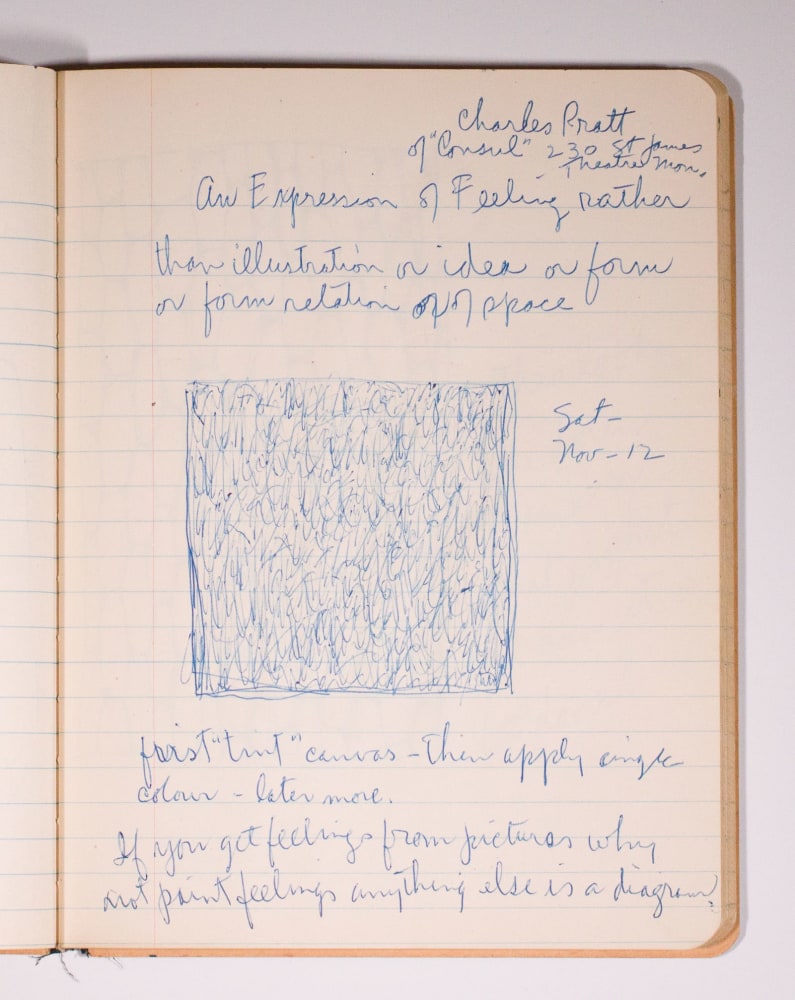 Charles Pratt
of "Consul" 230 St James
Theatre Mon.
An Expression of Feeling rather
than illustration or idea or form
or form relation of of space
Sat-
Nov-12
first "tint" canvas - then apply single
colour - later more.
If you get feelings from pictures why
not paint feelings anything else is a diagram?